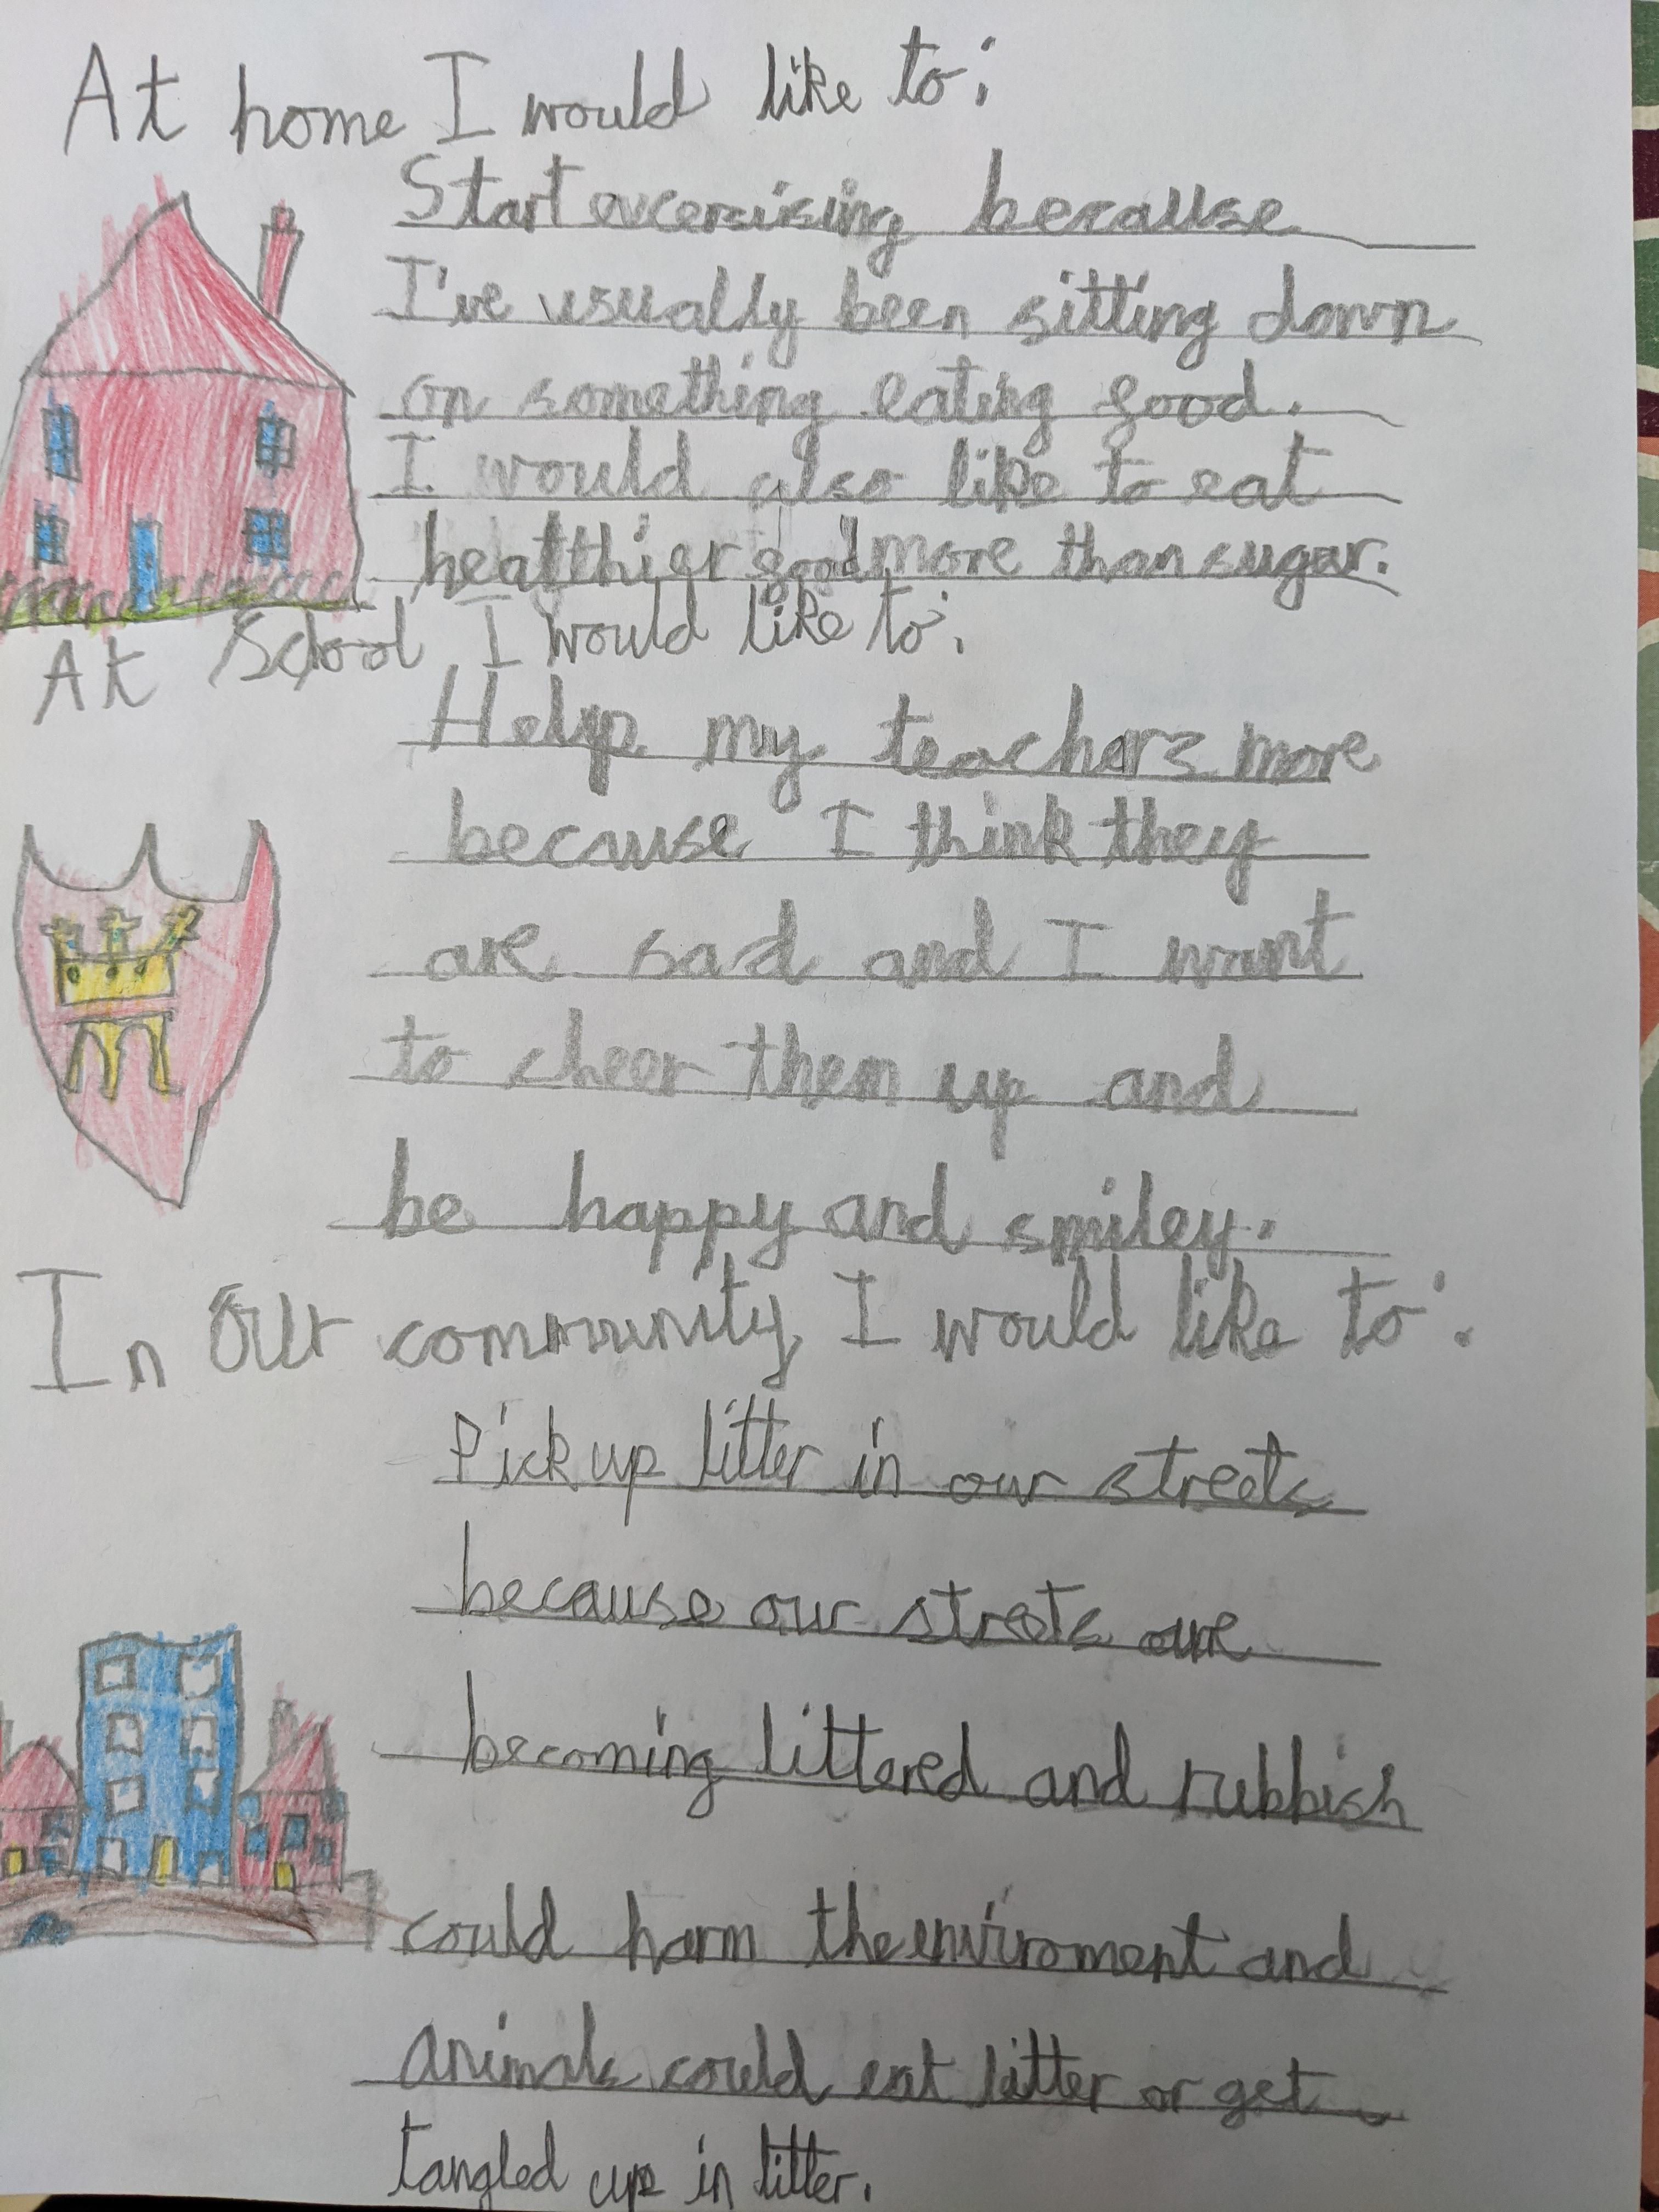 At home I would like to:
Start excersising because
I've usually been sitting down
on something eating food.
I would also like to eat
healthier food more than sugar.
At School I would like to:
Help my teachers more
because I think they
are sad and I want
to cheer them up and
be happy and smiley.
In Our community I would like to:
Pick up litter in our streets
because our streets are
becoming littered and rubbish
could harm the enviroment and
animals could eat litter or get
tangled up in litter.